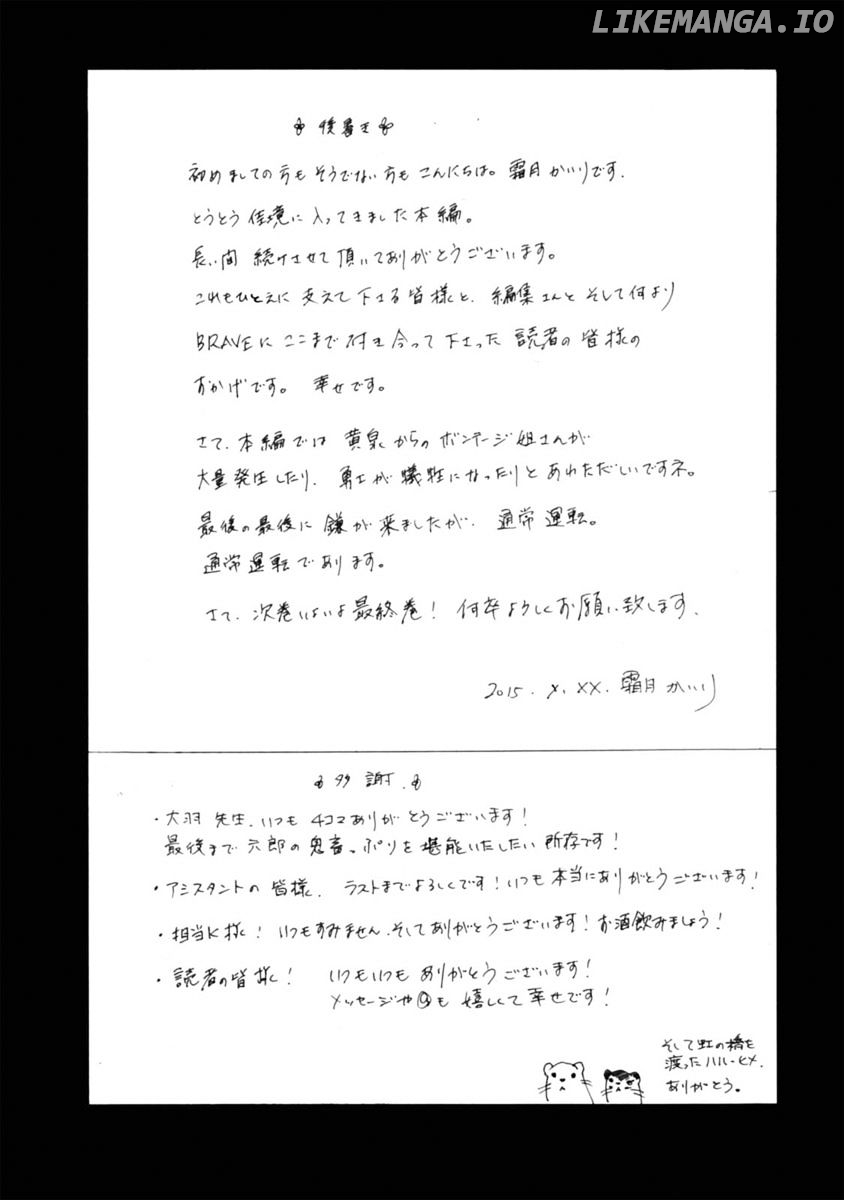 LIKEMANGA.IO
後書き
初めましての方もそうでない方もこんにちは。霜月かいりです。
とうとう佳境に入ってきました本編。
長い間 続けさせて頂いてありがとうございます。
これもひとえに 支えて下さる皆様と、編集さんと そして何より
BRAVEに ここまで 付き合って下さった 読者の皆様の
おかげです。 幸せです。
さて、本編では 黄泉からの ボンテージ姐さんが
大量発生したり、勇士が犠牲になったりと あわただしいですネ。
最後の最後に 鎌が来ましたが、通常運転。
通常運転であります。
さて、次巻いよいよ最終巻! 何卒よろしくお願い致します。
2015. X. XX. 霜月かいり
多謝
・大羽先生、いつも 4コマありがとうございます!
最後まで 六郎の鬼畜っぷりを 堪能いたしたい 所存です!
・アシスタントの皆様、 ラストまでよろしくです!いつも本当にありがとうございます!
・担当K様! いつもすみません、そしてありがとうございます! お酒飲みましょう!
・読者の皆様! いつもいつも ありがとうございます!
メッセージや も 嬉しくて幸せです!
そして虹の橋を
渡ったハル・ヒメ、
ありがとう。